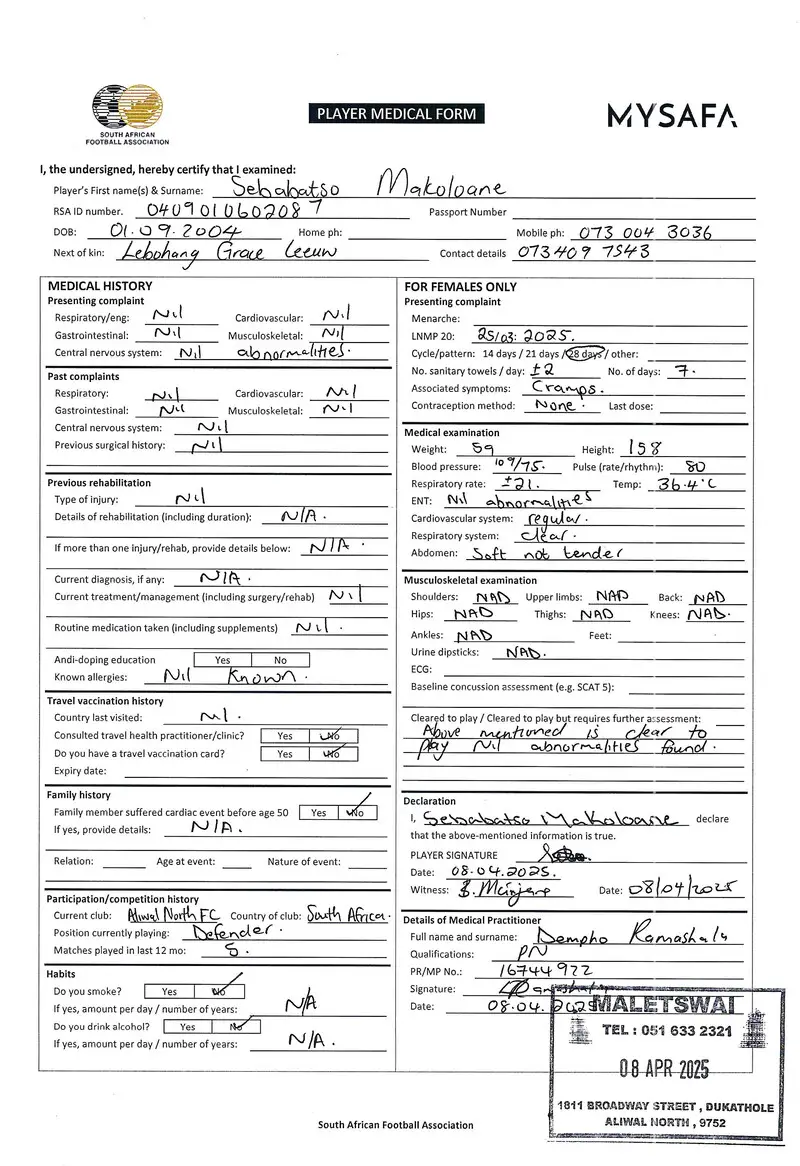 SOUTH AFRICAN
FOOTBALL ASSOCIATION
PLAYER MEDICAL FORM
MYSAFA
I, the undersigned, hereby certify that I examined:
Player's First name(s) & Surname: Sebabatso Makoloane
RSA ID number. 0409010602087 Passport Number
DOB: 01.09.2004 Home ph: Mobile ph: 073 004 3036
Next of kin: Lebohang Grace Leeuw Contact details 073 409 7543
MEDICAL HISTORY
Presenting complaint
Respiratory/eng: Nil Cardiovascular: Nil
Gastrointestinal: Nil Musculoskeletal: Nil
Central nervous system: Nil abnormalities.
Past complaints
Respiratory: Nil Cardiovascular: Nil
Gastrointestinal: Nil Musculoskeletal: Nil
Central nervous system: Nil
Previous surgical history: Nil
Previous rehabilitation
Type of injury: Nil
Details of rehabilitation (including duration): N/A.
If more than one injury/rehab, provide details below: N/A.
Current diagnosis, if any: N/A.
Current treatment/management (including surgery/rehab) Nil
Routine medication taken (including supplements) Nil.
Andi-doping education Yes No
Known allergies: Nil Known.
Travel vaccination history
Country last visited: Nil.
Consulted travel health practitioner/clinic? Yes No
Do you have a travel vaccination card? Yes No
Expiry date:
Family history
Family member suffered cardiac event before age 50 Yes No
If yes, provide details: N/A.
Relation: Age at event: Nature of event:
Participation/competition history
Current club: Aliwal North FC Country of club: South Africa.
Position currently playing: Defender.
Matches played in last 12 mo: 5.
Habits
Do you smoke? Yes No
If yes, amount per day / number of years: N/A
Do you drink alcohol? Yes No
If yes, amount per day / number of years: N/A.
FOR FEMALES ONLY
Presenting complaint
Menarche:
LNMP 20: 25/03/2025.
Cycle/pattern: 14 days / 21 days / 28 days / other:
No. sanitary towels / day: ±2 No. of days: 7.
Associated symptoms: Cramps.
Contraception method: None. Last dose:
Medical examination
Weight: 59 Height: 158
Blood pressure: 109/75. Pulse (rate/rhythm): 80
Respiratory rate: ±21. Temp: 36.4°C
ENT: Nil abnormalities
Cardiovascular system: regular.
Respiratory system: clear.
Abdomen: Soft not tender
Musculoskeletal examination
Shoulders: NAD Upper limbs: NAD Back: NAD
Hips: NAD Thighs: NAD Knees: NAD.
Ankles: NAD Feet:
Urine dipsticks: NAD.
ECG:
Baseline concussion assessment (e.g. SCAT 5):
Cleared to play / Cleared to play but requires further assessment:
Above mentioned is clear to
play Nil abnormalities found.
Declaration
I, Sebabatso Makoloane declare
that the above-mentioned information is true.
PLAYER SIGNATURE
Date: 08.04.2025.
Witness: Date: 08/04/2025
Details of Medical Practitioner
Full name and surname: Dempho Ramashala
Qualifications: PN
PR/MP No.: 16744922
Signature:
Date: 08.04.2025
MALETSWAI
TEL : 051 633 2321
08 APR 2025
1811 BROADWAY STREET , DUKATHOLE
ALIWAL NORTH , 9752
South African Football Association